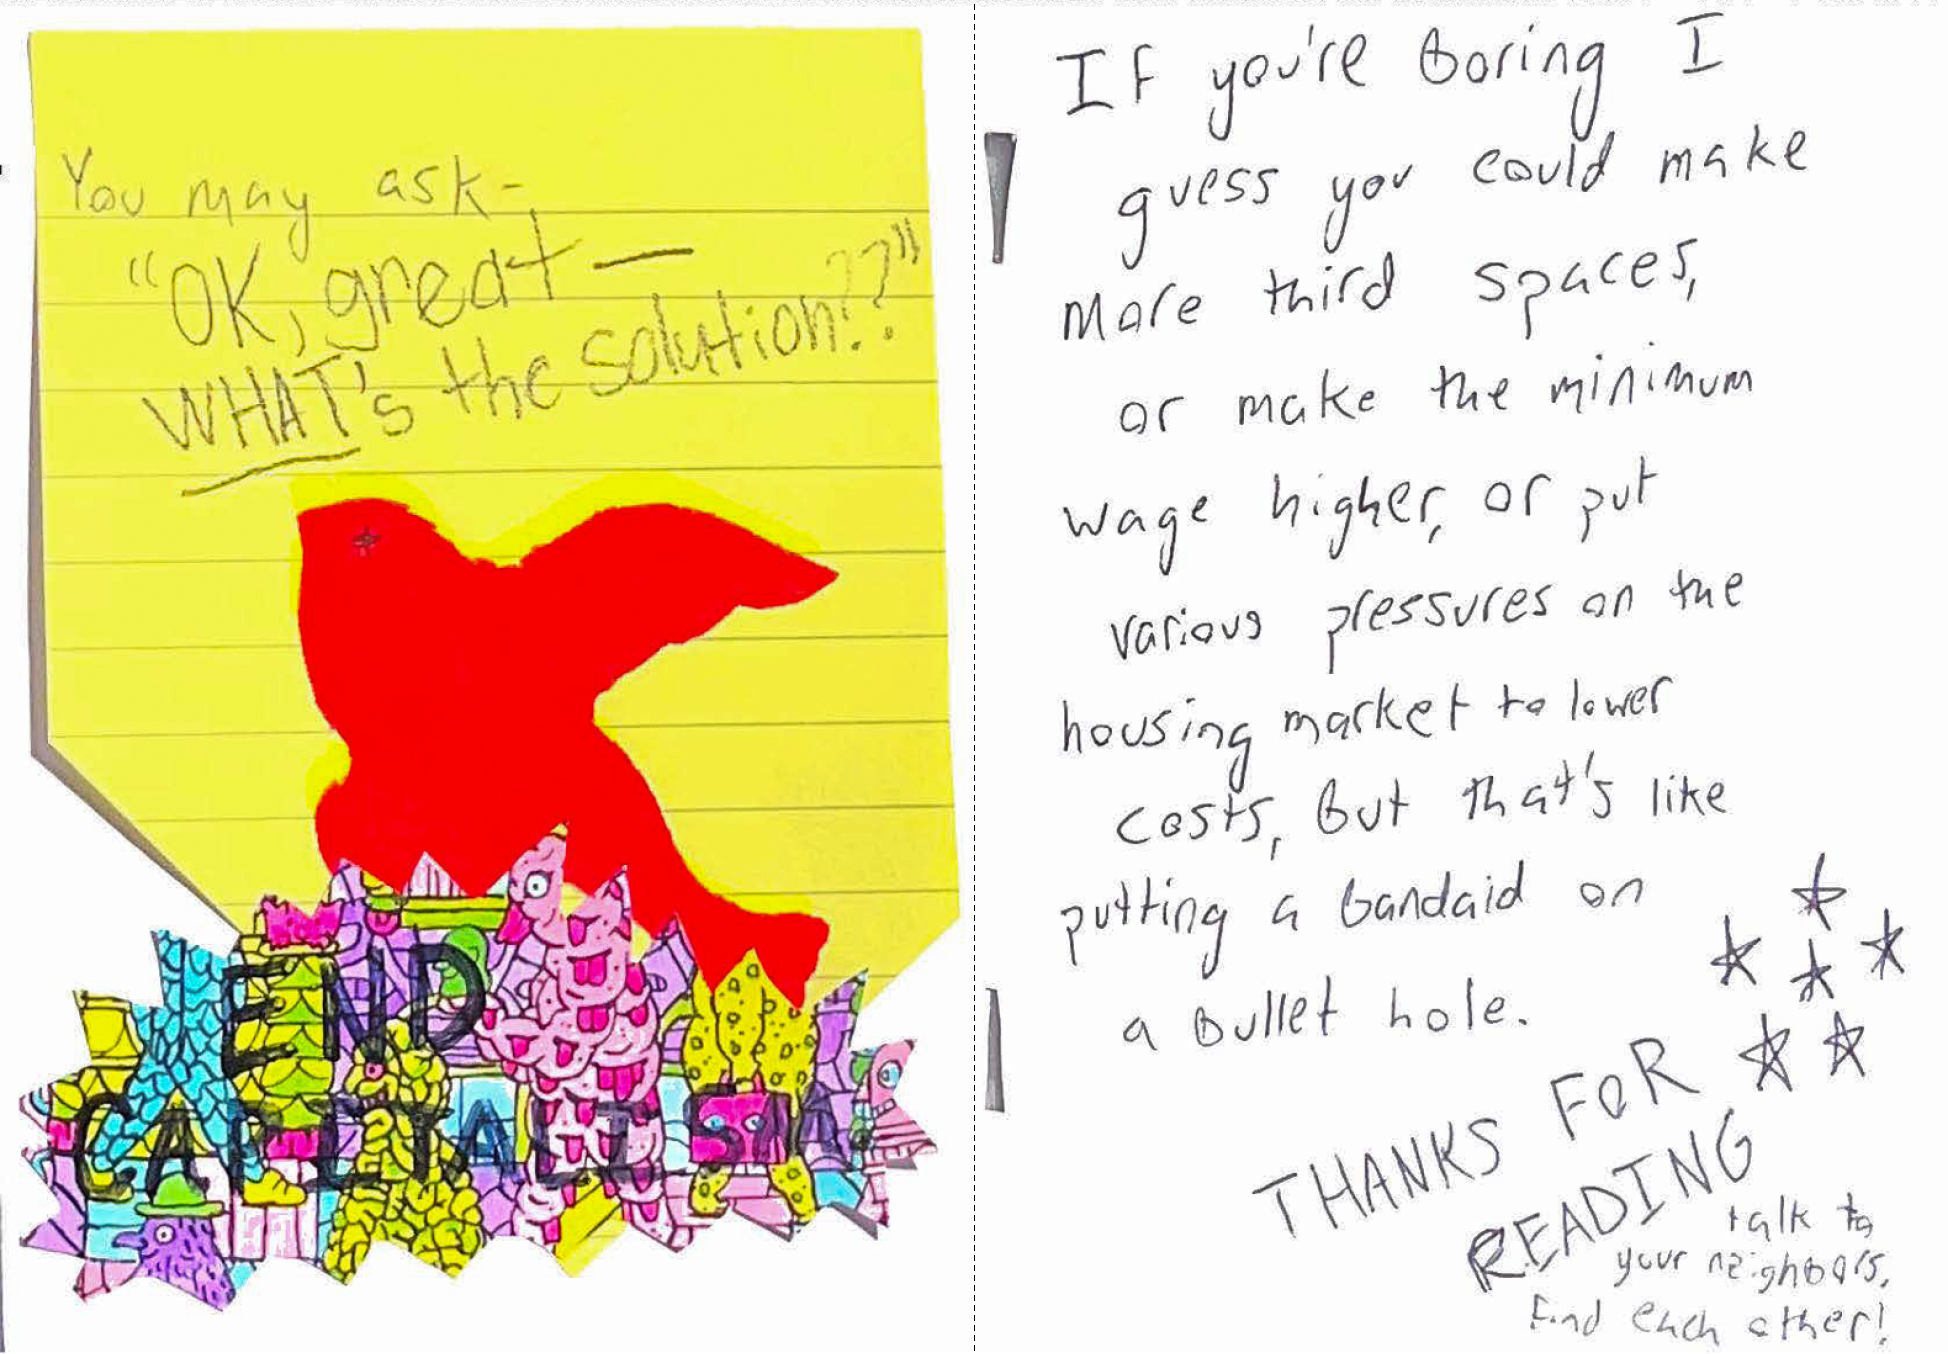 You may ask-
"OK, great —
WHAT's the solution!??"
END
CAPITALISM
If you're boring I
guess you could make
more third spaces,
or make the minimum
wage higher, or put
various pressures on the
housing market to lower
costs, but that's like
putting a bandaid on
a bullet hole.
THANKS FOR
READING
talk to
your neighbors,
find each other!